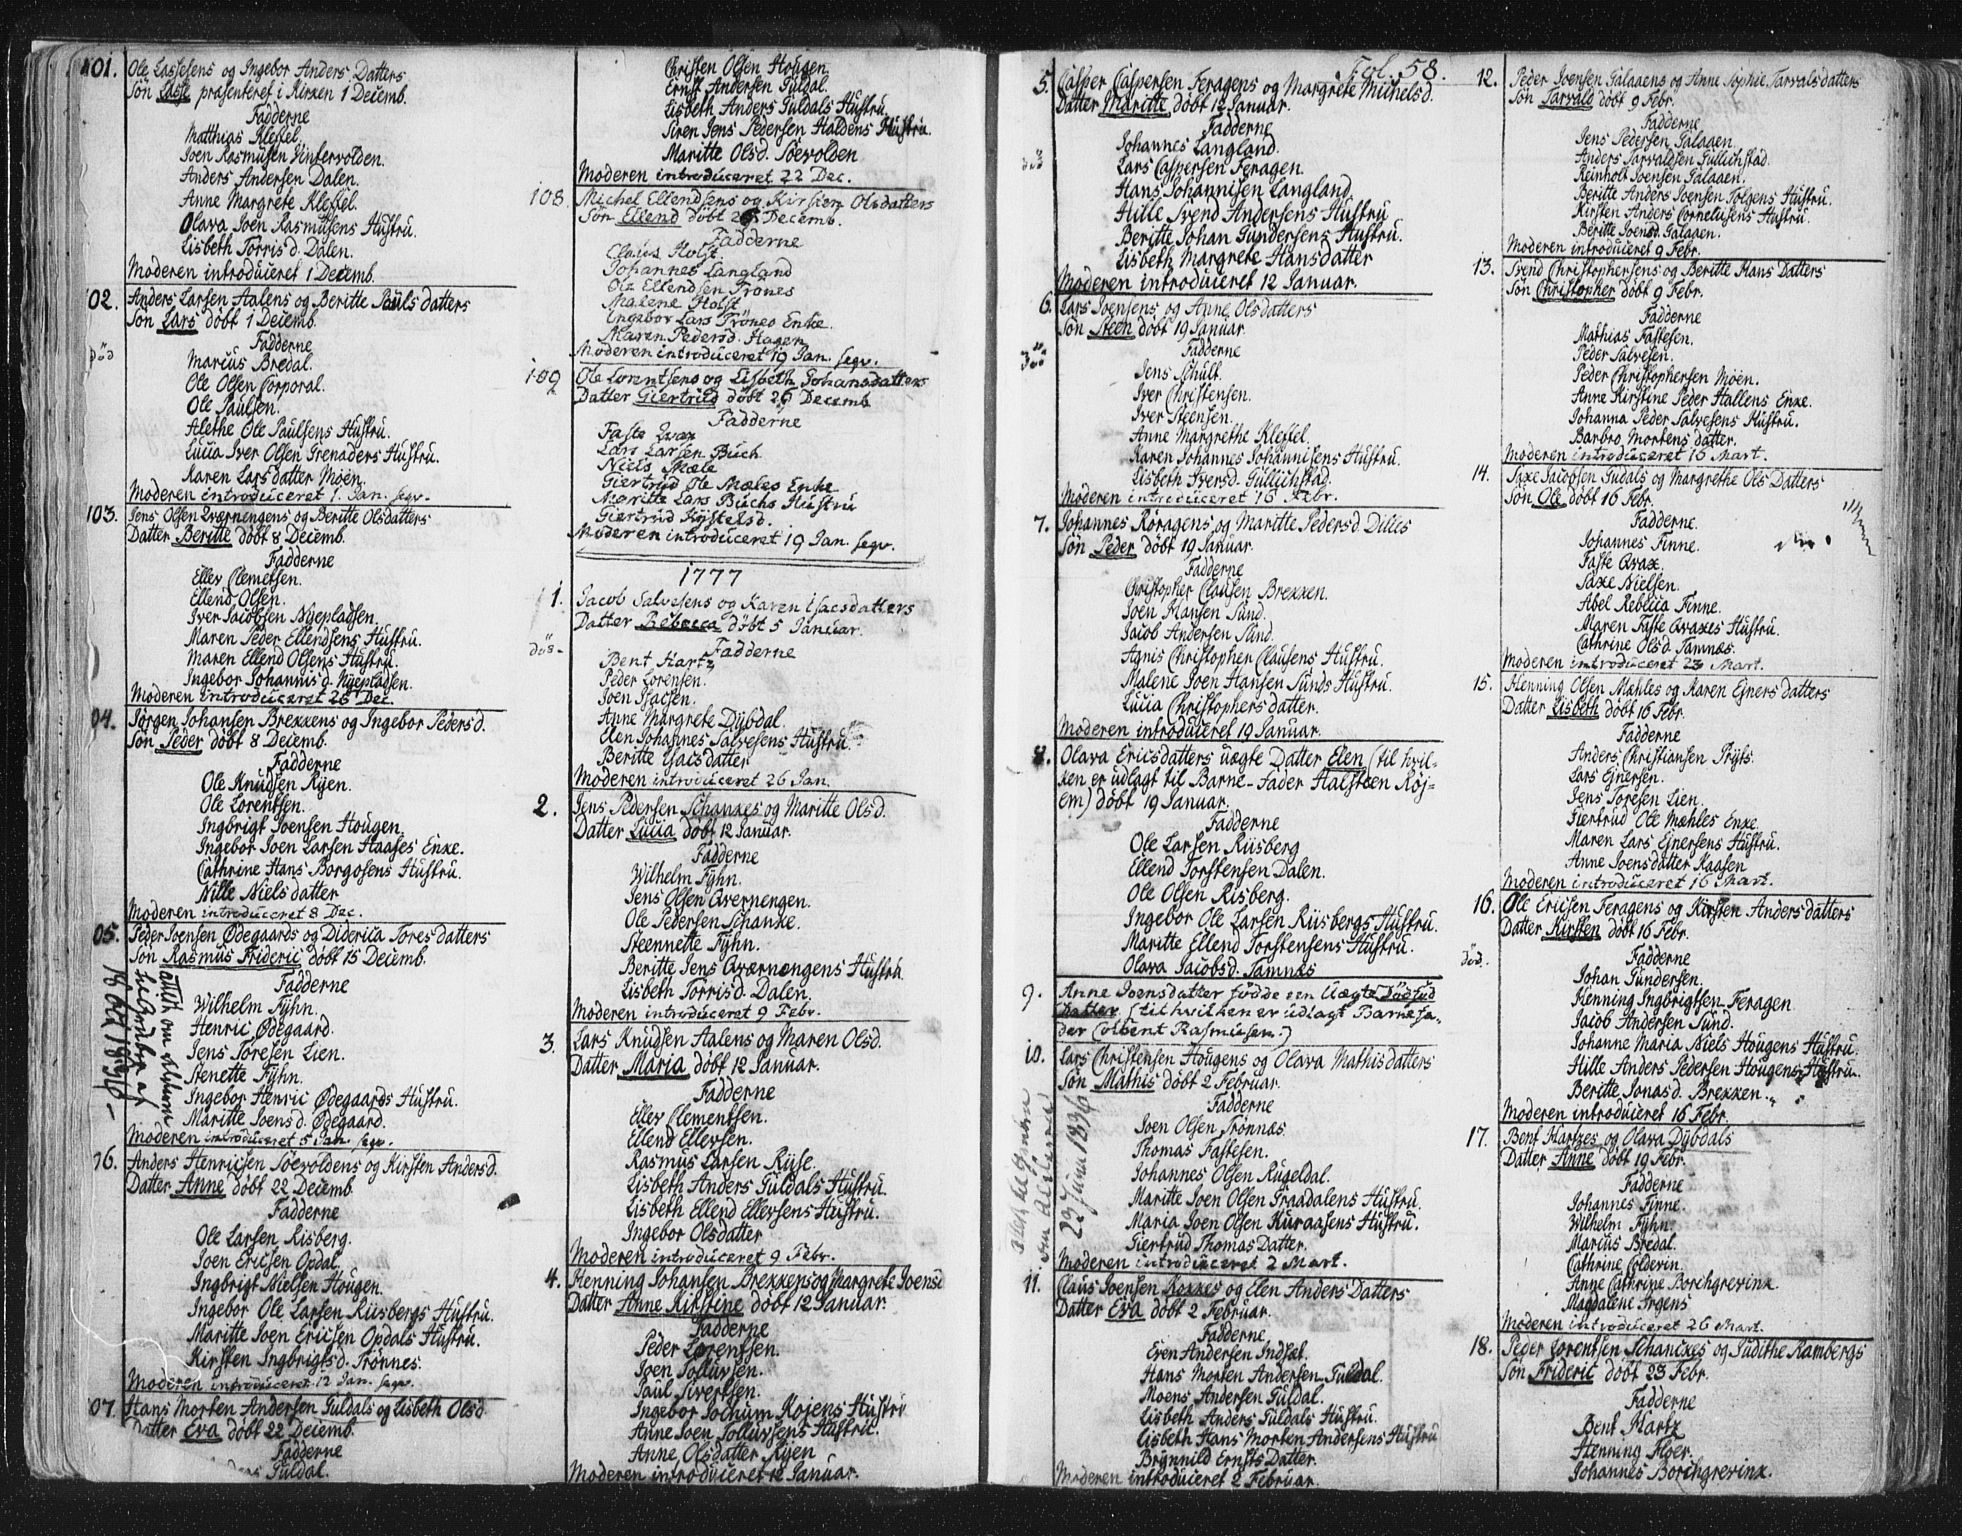 101. Ole Lassesens og Ingebor Anders Datters
Sön Lasse præsenteret i Kirken 1 Decemb.
Fadderne
Matthias Kleffel.
Joen Rasmusen Vintervolden.
Anders Andersen Dalen.
Anne Margrete Kleffel.
Olava Joen Rasmusens Hustru.
Lisbeth Torrisd. Dalen.
Moderen introduceret 1 Decemb.
102. Anders Larsen Aalens og Beritte Pauls datters
Sön Lars döbt 1 Decemb.
död
Fadderne
Marcus Bredal.
Ole Olsen Corporal.
Ole Paulsen.
Alethe Ole Paulsens Hustru.
Lucia Iver Olsen Grenaders Hustru.
Karen Larsdatter Moen.
Moderen introduceret 1. Jan. seqv.
103. Jens Olsen Qværnengens og Beritte Olsdatters
Datter Beritte döbt 8 Decemb.
Fadderne
Ellev Clemetsen.
Ellend Olsen.
Iver Jacobsen Nyepladsen.
Maren Peder Ellendsens Hustru.
Maren Ellend Olsens Hustru.
Ingebor Johannisd. Nyepladsen.
Moderen introduceret 26 Dec.
04. Jörgen Johansen Brekkens og Ingebor Pedersd.
Sön Peder döbt 8 Decemb.
Fadderne
Ole Knudsen Ryen.
Ole Lorentsen.
Ingbrigt Joensen Hougen.
Ingebor Joen Larsen Haases Enke.
Cathrine Hans Borgosens Hustru.
Nille Niels datter
Moderen introduceret 8 Dec.
05. Peder Joensen Ødegaards og Diderica Tores datters
Sön Rasmus Frideric döbt 15 Decemb.
Fadderne
Wilhelm Fÿhn.
Henric Ødegaard.
Jens Toresen Lien.
Stenette Fÿhn.
Ingebor Henric Ødegaards Hustru.
Maritte Joensd. Ødegaard.
Moderen introduceret 5 Jan. seqv.
06. Anders Henricsen Söevoldens og Kirsten Andersd.
Datter Anne döbt 22 Decemb.
Fadderne
Ole Larsen Risberg.
Joen Ericsen Opdal.
Ingbrigt Nielsen Hougen.
Ingebor Ole Larsen Riisbergs Hustru.
Maritte Joen Ericsen Opdals Hustru.
Kirsten Ingbrigtsd. Trönnes.
Moderen introduceret 12 Jan. seqv.
07. Hans Morten Andersen Guldals og Lisbeth Olsd.
Datter Eva döbt 22 Decemb.
Fadderne
Guldal.
Christen Olsen Hougen.
Ernst Andersen Guldal.
Lisbeth Anders Guldals Hustru.
Siren Jens Pedersen Haldens Hustru.
Maritte Olsd. Söevolden
Moderen introduceret 22 Dec.
108. Michel Ellendsens og Kirsten Olsdatters
Sön Ellend döbt 26 Decemb.
Fadderne
Claus Holst.
Johannes Langland
Ole Ellendsen Trönes
Malene Holst
Ingebor Lars Trönes Enke.
Maren Pedersd. Hagen
Moderen introduceret 19 Jan. seqv.
109 Ole Lorentsens og Lisbeth Johansdatters
Datter Giertrud döbt 26 Decemb
Fadderne
Faste Qvax
Lars Larsen Buch
Niels Mæle
Giertrud Ole Mæles Enke
Maritte Lars Buchs Hustru
Giertrud Kystelsd.
Moderen introduceret 19 Jan. seqv.
1777
1. Jacob Salvesens og Karen Isacsdatters
Datter Rebecca döbt 5 Januar.
död
Fadderne
Bent Hartz
Peder Lorensen.
Joen Isacsen.
Anne Margrete Dÿbdal.
Elen Johannes Salvesens Hustru.
Beritte Isacsdatter
Moderen introduceret 26 Jan.
2. Jens Pedersen Schankes og Maritte Olsd.
Datter Lucia döbt 12 Januar.
Fadderne
Wilhelm Fÿhn.
Jens Olsen Qvernengen.
Ole Pedersen Schanke.
Steennette Fÿhn.
Beritte Jens Qværnengens Hustru.
Lisbeth Torrisd. Dalen.
Moderen introduceret 9 Febr.
3. Lars Knudsen Aalens og Maren Olsd.
Datter Maria döbt 12 Januar.
Fadderne
Ellev Clementsen.
Ellend Ellevsen.
Rasmus Larsen Ryse.
Lisbeth Anders Guldals Hustru.
Lisbeth Ellend Ellevsens Hustru.
Ingebor Olsdatter
Moderen introduceret 9 Febr.
4. Henning Johansen Brekkens og Margrete Joensd
Datter Anne Kirstine döbt 12 Januar.
Fadderne
Peder Lorentsen.
Joen Jolluvsen.
Paul Sivertsen.
Ingebor Jochum Kojens Hustru
Anne Joen Jolluvsens Hustru.
Anne Olsdatter Ryen
Moderen introduceret 12 Januar.
Fol. 58.
5. Casper Caspersen Feragens og Margrete Michelsd.
Datter Maritte döbt 12 Januar.
Fadderne
död
Johannes Langland.
Lars Caspersen Feragen.
Hans Johannisen Langland.
Hille Svend Andersens Hustru
Beritte Johan Gundersens Hustru.
Lisbeth Margrete Hansdatter
Moderen introduceret 12 Januar.
6. Lars Joensens og Anne Olsdatters
Sön Steen döbt 19 Januar.
Fadderne
död
Jens Schult.
Iver Christensen.
Iver Steensen.
Anne Margrethe Kleffel.
Karen Johannes Johannisens Hustru.
Lisbeth Iversd. Gullichstad.
Moderen introduceret 16 Febr.
7. Johannes Röragens og Maritte Pedersd Dilles
Sön Peder döbt 19 Januar.
Fadderne
Christopher Clausen Brekken.
Joen Hansen Sund.
Jacob Andersen Sund.
Agnis Christopher Clausens Hustru.
Malene Joen Hansen Sunds Hustru.
Lucia Christophers datter.
Moderen introduceret 19 Januar.
8. Olava Ericsdatters uægte Datter Elen (til hvil-
ken er udlagt til Barne-Fader Halsteen Röj-
em) döbt 19 Januar.
Fadderne
Ole Larsen Riisberg
Ellend Torstensen Dalen.
Ole Olsen Risberg.
Ingebor Ole Larsen Riisbergs Hustru.
Maritte Ellend Torstensens Hustru.
Olava Jacobsd. Tamnes
9. Anne Joensdatter födde een Uægte Dödfüd
Datter (til hvilken er udlagt Barnefa-
der Colbent Rasmusen.)
10. Lars Christensen Hougens og Olava Mathis datters
Sön Mathis döbt 2 Februar.
Fadderne
Joen Olsen Trönnæs.
Thomas Fastesen.
Johannes Olsen Rugeldal.
Maritte Joen Olsen Graadalens Hustru.
Maria Joen Olsen Kuraasens Hustru.
Giertrud Thomas Datter.
Moderen introduceret 2 Mart.
23 Juni 1836
11. Claus Joensen Kokkes og Elen Anders Datters
Datter Eva döbt 2 Februar.
Fadderne
Even Andersen Indset.
Hans Morten Andersen Guldal.
Moens Andersen Guldal.
Lisbeth Anders Guldals Hustru.
Lisbeth Hans Morten Andersens Hustru
Brynnild Ernsts Datter.
Moderen introduceret 2 Februar.
12. Peder Joensen Galaaens og Anne Sophie Tarvals datters
Sön Tarvald döbt 9 Febr.
Fadderne
Jens Pedersen Galaaen.
Anders Tarvaldsen Gullichstad.
Reinholt Joensen Galaaen.
Beritte Anders Joensen Tolgens Hustru.
Kirsten Anders Corneliusens Hustru.
Beritte Joensd. Galaaen.
Moderen introduceret 9 Febr.
13. Svend Christophersens og Beritte Hans Datters
Sön Christopher döbt 9 Febr.
Fadderne
Mathias Fastesen.
Peder Salvesen.
Peder Christophersen Möen.
Anne Kirstine Peder Hallens Enke.
Johanna Peder Salvesens Hustru.
Barbro Mortens datter.
Moderen introduceret 16 Mart.
14. Saxe Jacobsen Gudals og Margrethe Ols Datters
Sön Ole döbt 16 Febr.
Fadderne.
Johannes Finne.
Faste Qvax.
Saxe Nielsen.
Abel Rebecca Finne.
Maren Faste Qvaxes Hustru.
Cathrine Olsd. Tamnæs.
Moderen introduceret 23 Mart.
15. Henning Olsen Mæhles og Karen Ejners datters
Datter Lisbeth döbt 16 Febr.
Fadderne
Anders Christiansen Prÿts.
Lars Ejnersen.
Jens Toresen Lien.
Giertrud Ole Mæhles Enke.
Maren Lars Ejnersens Hustru.
Anne Joensdatter Kaasen
Moderen introduceret 16 Mart.
16. Ole Ericsen Feragens og Kirsten Anders datters
Datter Kirsten döbt 16 Febr.
död.
Fadderne
Johan Gundersen.
Henning Ingbrigtsen Feragen.
Jacob Andersen Sund.
Johanne Maria Niels Hougens Hustru.
Hille Anders Pedersen Hougens Hustru.
Beritte Jonasd. Brekken.
Moderen introduceret 16 Febr.
17. Bent Hartzes og Olava Dÿbdals
Datter Anne döbt 19 Febr.
Fadderne
Johannes Finne.
Wilhelm Fÿhn.
Marcus Bredal.
Cathrine Colderin.
Anne Cathrine Borchgrevink.
Magdalene Irgens
Moderen introduceret 26 Mart.
18. Peder Lorentsen Schanckes og Judithe Rambergs
Sön Frideric döbt 23 Febr.
Fadderne
Bent Hartz
Henning Floer.
Johannes Borchgrevink.